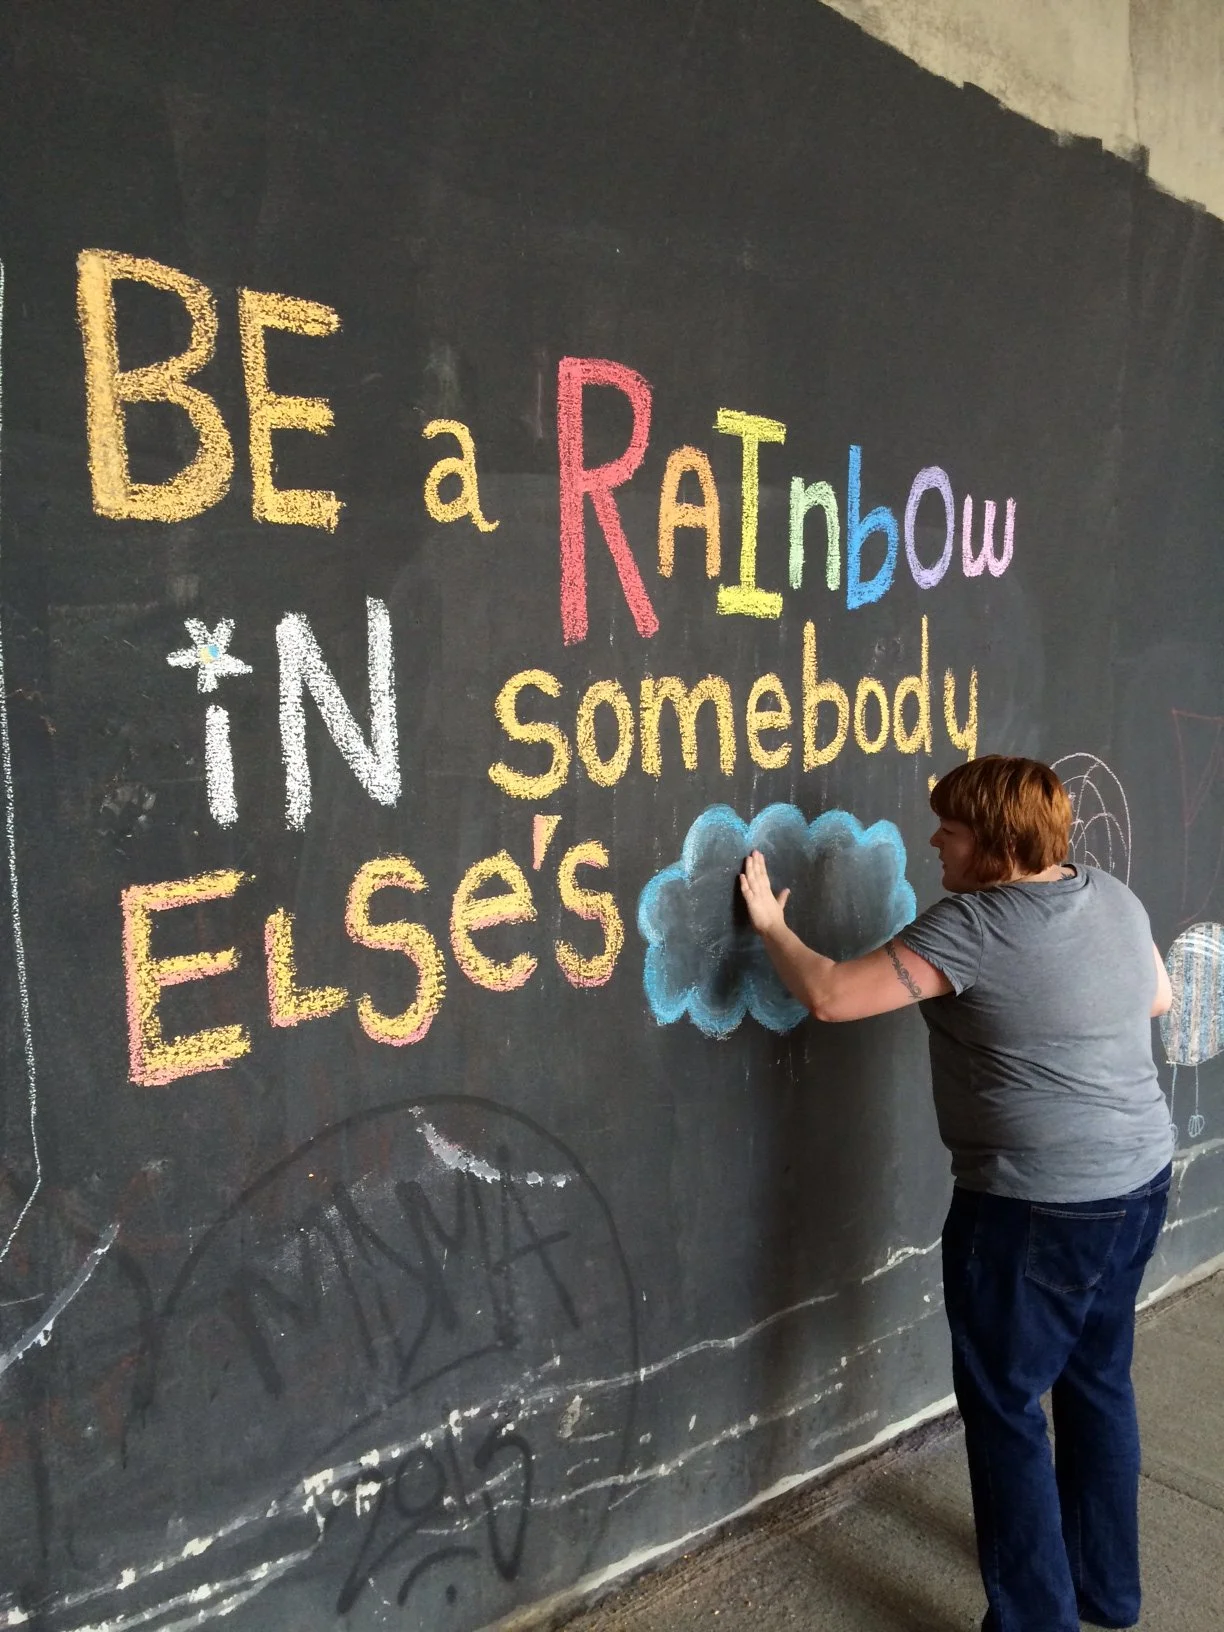 BE a RAInbOw
iN somebody
ELSe's
2015